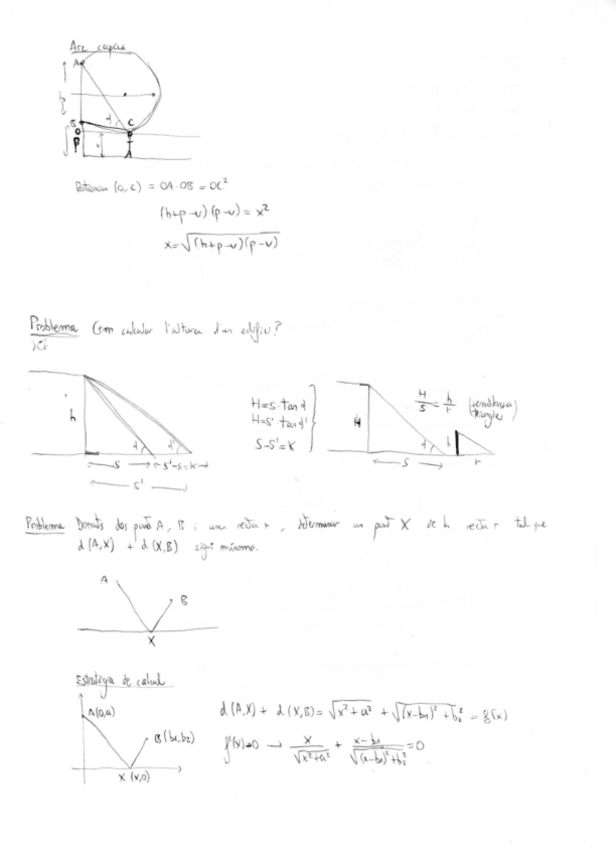 Arc capaç
A
h
B
α C
O
P v
Potència (O, C) = OA·OB = OC²
(h+p-v)(p-v) = x²
x=√(h+p-v)(p-v)
Problema Com calcular l'altura d'un edifici?
h
α α'
S S'-S=K
S'
H=S·tan α
H=S'·tan α'
S-S'=K
H
α h
S r
H/S = h/r (semblança triangles)
Problema Donats dos punts A, B i una recta r, determinar un punt X de la recta r tal que
d(A,X) + d(X,B) sigui mínima.
A
B
X
Estratègia de càlcul
A(0,a)
B(b₁,b₂)
X (x,0)
d(A,X) + d(X,B) = √x²+a² + √(x-b₁)²+b₂² = f(x)
f'(x)=0 → x/√x²+a² + x-b₁/√(x-b₁)²+b₂² = 0